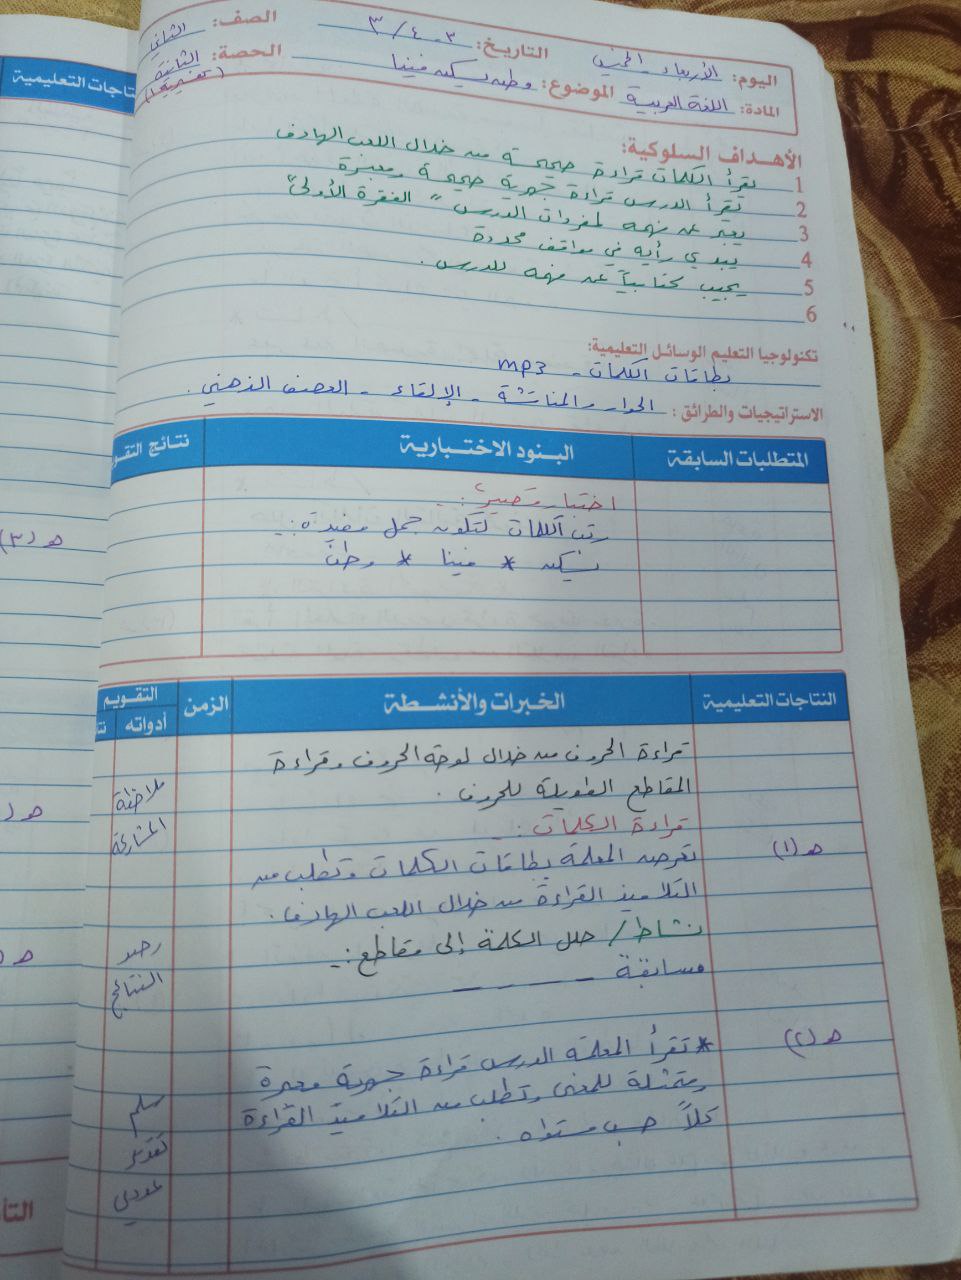 اليوم: الأربعاء - الخميس التاريخ: ٣-٤/٣ الصف: الثاني
المادة: اللغة العربية الموضوع: وطن يسكن فينا الحصة: الثانية
الأهداف السلوكية:
1 تقرأ الكلمات قراءة صحيحة من خلال اللعب الهادف
2 تقرأ الدرس قراءة جهرية صحيحة ومعبرة
3 يعبر عن فهمه لمفردات الدرس "الفقرة الأولى"
4 يبدي رأيه في مواقف محددة
5 يجيب كتابياً عن فهمه للدرس .
6
تكنولوجيا التعليم الوسائل التعليمية:
بطاقات الكلمات - mp3
الاستراتيجيات والطرائق : الحوار والمناقشة - الإلقاء - العصف الذهني .
المتطلبات السابقة البنود الاختبارية نتائج التقو
اختبار قصير :-
رتب الكلمات لتكون جمل مفيدة :-
يسكن * فينا * وطن
النتاجات التعليمية الخبرات والأنشطة الزمن التقويم
أدواته نتا
قراءة الحروف من خلال لوحة الحروف وقراءة
المقاطع الطويلة للحروف .
ملاحظة
قراءة الكلمات :-
المشاركة
هـ (١) تعرض المعلمة بطاقات الكلمات وتطلب من
التلاميذ القراءة من خلال اللعب الهادف .
نشاط / حلل الكلمة إلى مقاطع :-
رصد
مسابقة - - - -
النتائج
هـ (٢) * تقرأ المعلمة الدرس قراءة جهرية معبرة
ومتمثلة للمعنى وتطلب من التلاميذ القراءة
سلم
كلاً حسب مستواه .
تقدير
عددي
تاجات التعليمية
هـ (٣)
التأ